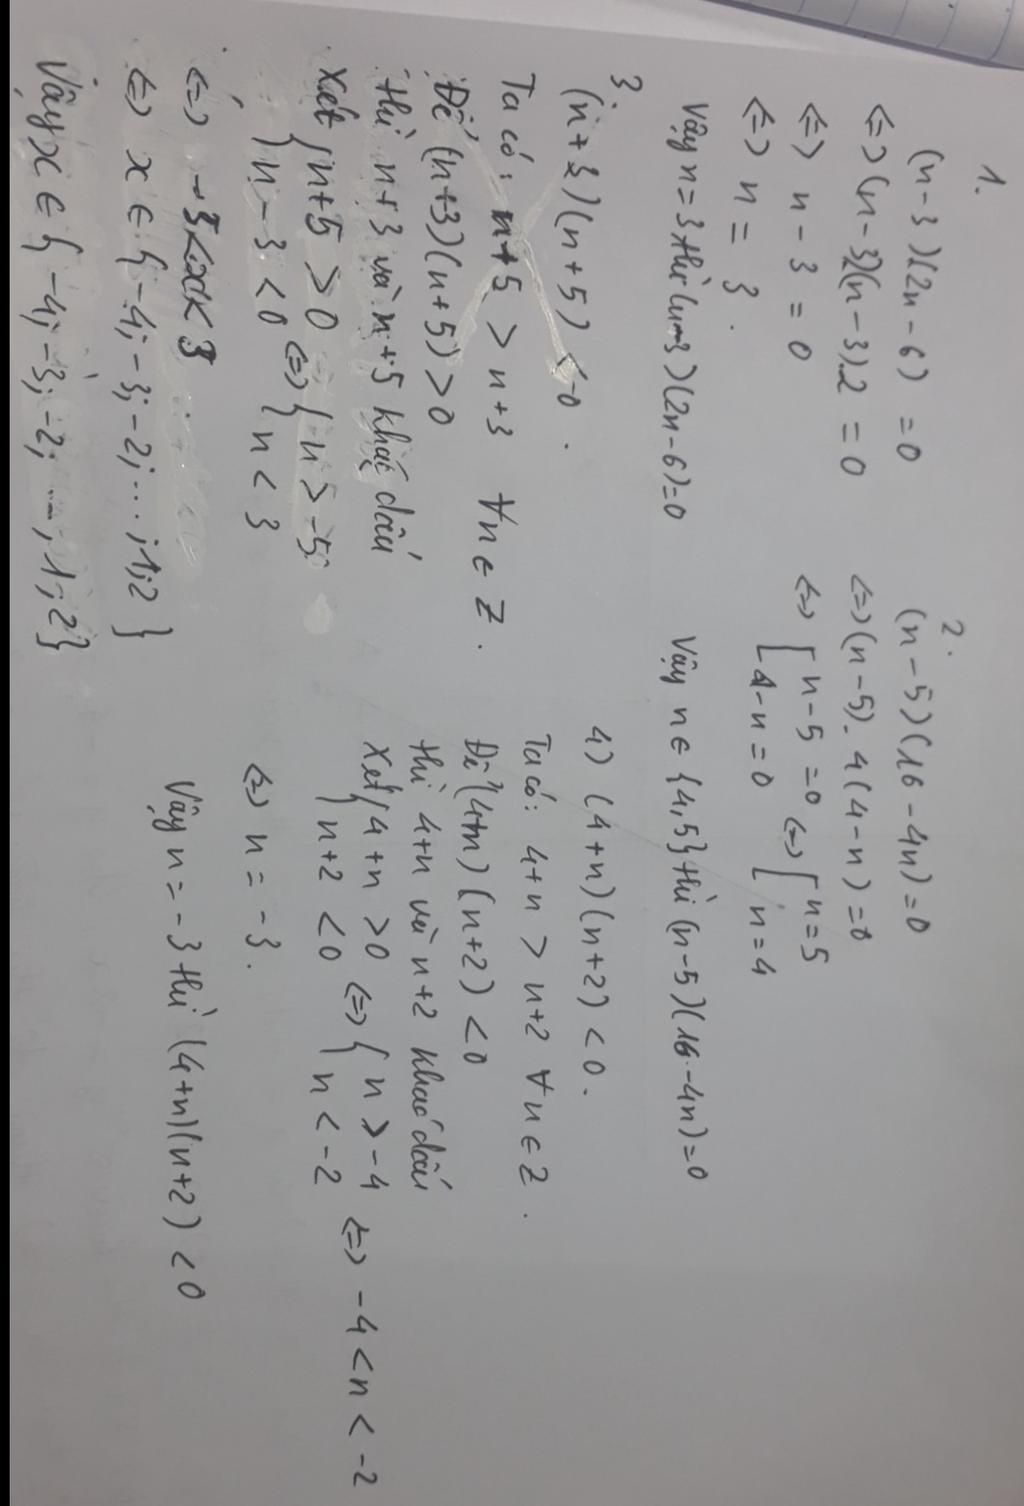 1.
(n-3)(2n-6) = 0
<=> (n-3)(n-3).2 = 0
<=> n-3 = 0
<=> n = 3.
Vậy n = 3 thì (n-3)(2n-6)=0
2.
(n-5)(16-4n)=0
<=> (n-5).4(4-n)=0
<=> [n-5=0 <=> [n=5
[4-n=0 [n=4
Vậy n ∈ {4,5} thì (n-5)(16-4n)=0
3.
(n+3)(n+5) < 0.
Ta có: n+5 > n+3 ∀n ∈ Z.
Để (n+3)(n+5) > 0
thì n+3 và n+5 khác dấu
Xét {n+5 > 0 <=> {n > -5
{n-3 < 0 {n < 3
<=> -5<x<3
<=> x ∈ {-4;-3;-2;...;1;2}
Vậy x ∈ {-4;-3;-2;...;1;2}
4) (4+n)(n+2) < 0.
Ta có: 4+n > n+2 ∀n ∈ Z.
Để (4+n)(n+2) < 0
thì 4+n và n+2 khác dấu
Xét {4+n > 0 <=> {n > -4 <=> -4 < n < -2
{n+2 < 0 {n < -2
<=> n = -3.
Vậy n = -3 thì (4+n)(n+2) < 0